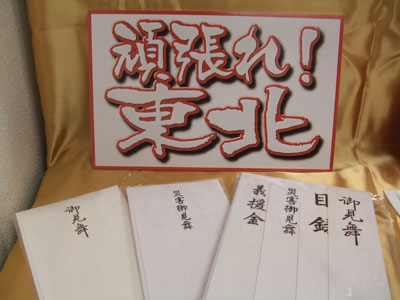 頑張れ!
東北
御見舞
災害御見舞
義援金
災害御見舞
目録
御見舞